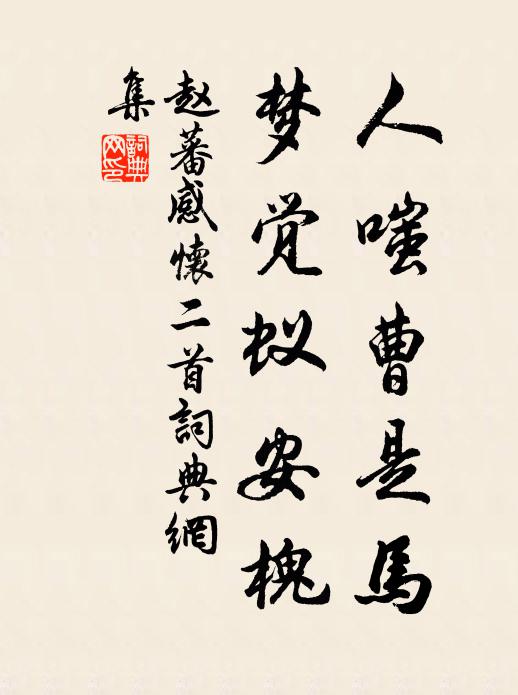 人嗤曹是馬
梦觉蚁安槐
赵蕃感懷二首詞典網
集
詞典
网印